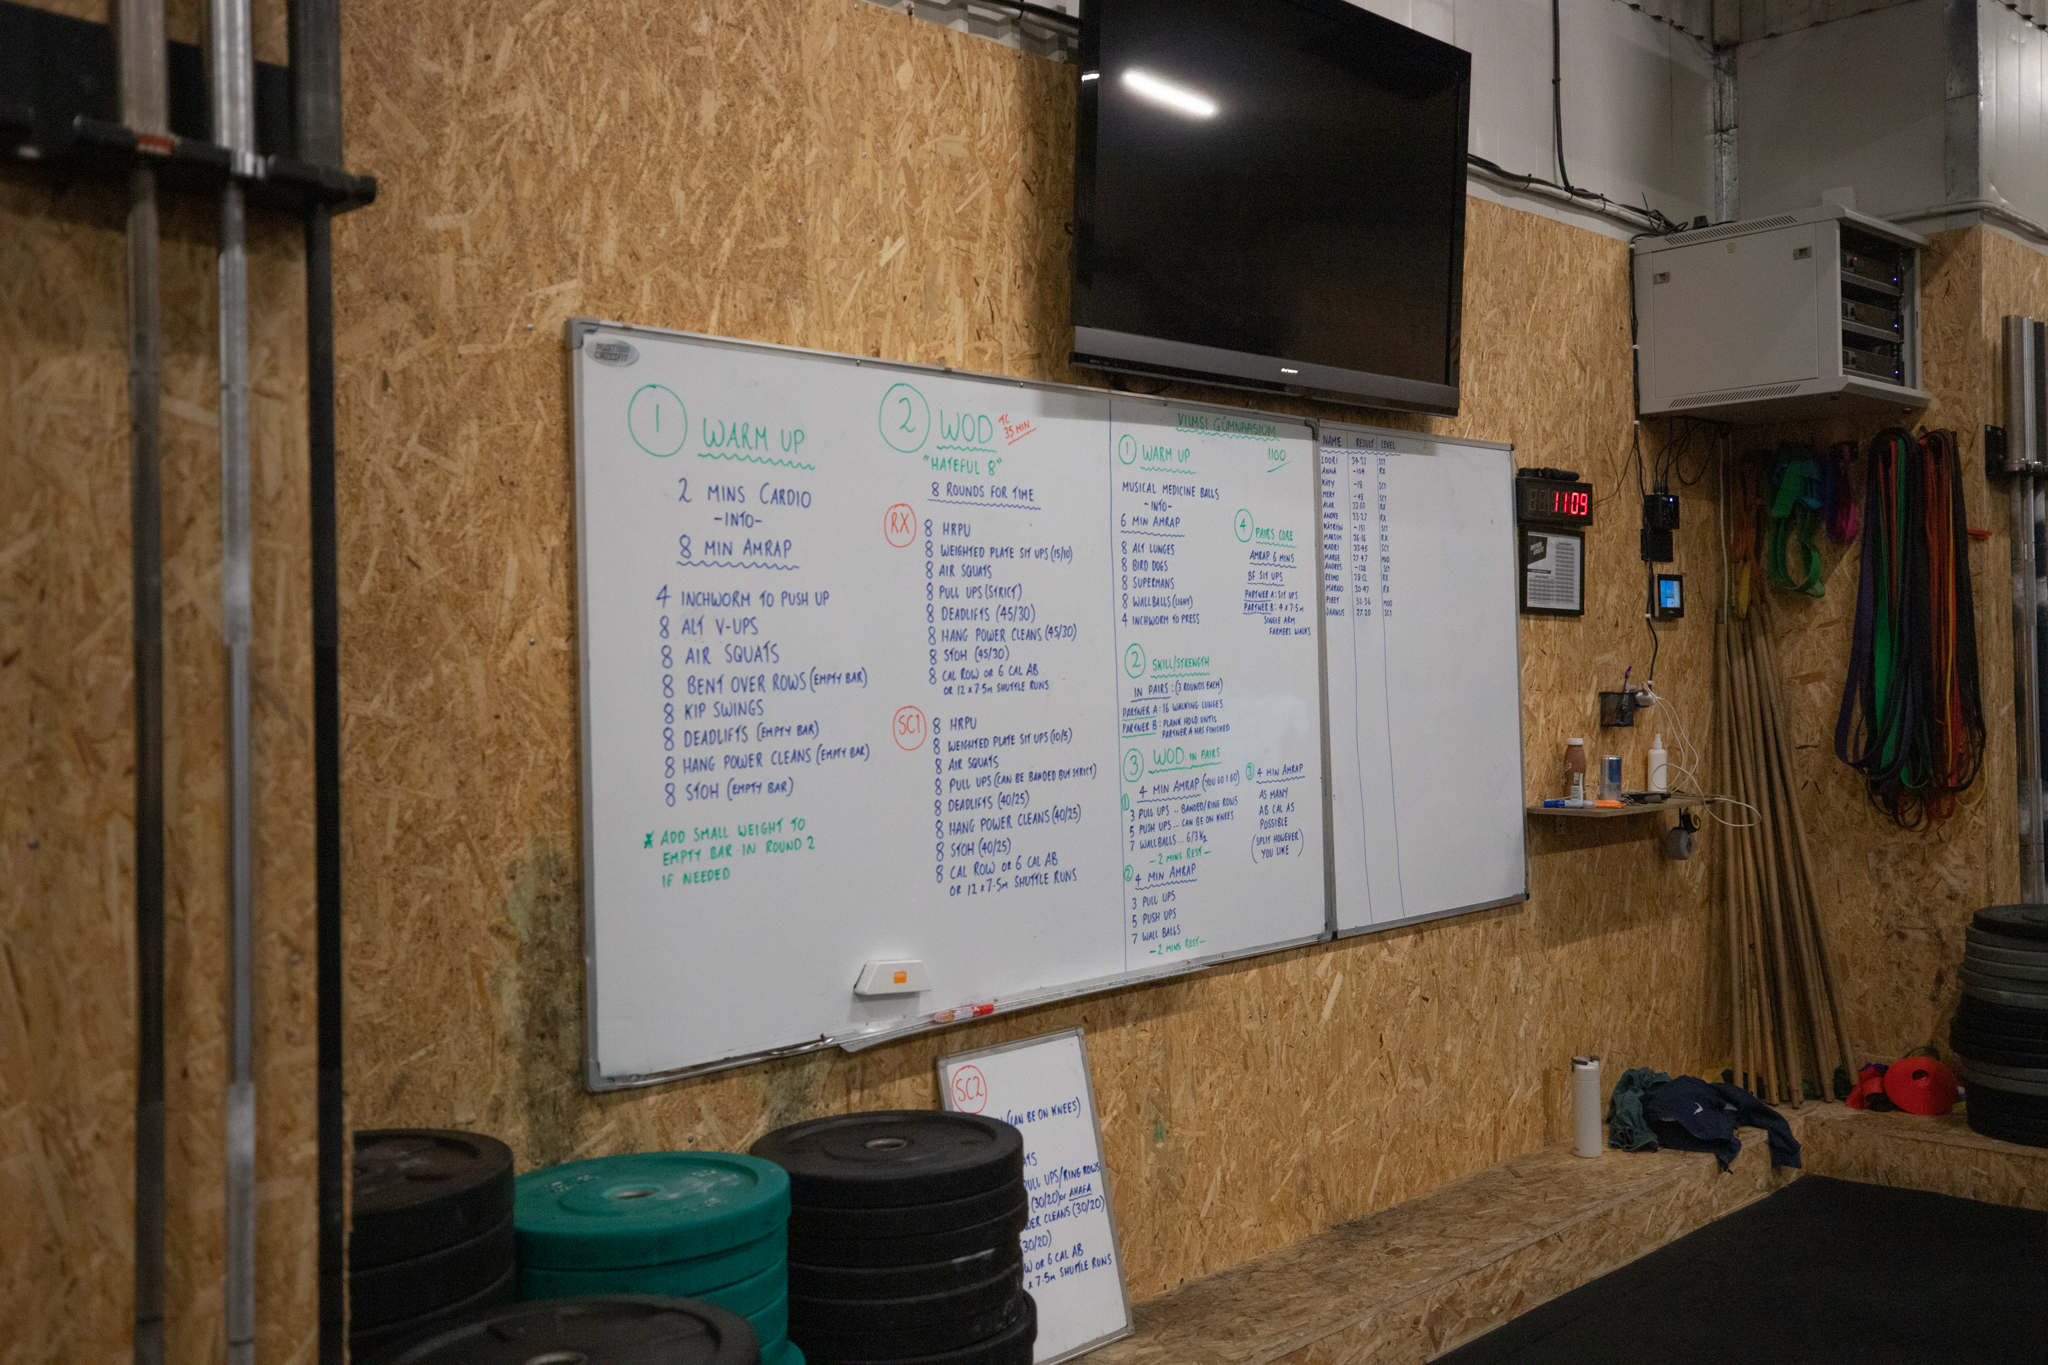 CROSSFIT
1 WARM UP
2 MINS CARDIO
-INTO-
8 MIN AMRAP
4 INCHWORM TO PUSH UP
8 ALT V-UPS
8 AIR SQUATS
8 BENT OVER ROWS (EMPTY BAR)
8 KIP SWINGS
8 DEADLIFTS (EMPTY BAR)
8 HANG POWER CLEANS (EMPTY BAR)
8 STOH (EMPTY BAR)
* ADD SMALL WEIGHT TO
EMPTY BAR IN ROUND 2
IF NEEDED
2 WOD TC
35 MIN
"HATEFUL 8"
8 ROUNDS FOR TIME
RX
8 HRPU
8 WEIGHTED PLATE SIT UPS (15/10)
8 AIR SQUATS
8 PULL UPS (STRICT)
8 DEADLIFTS (45/30)
8 HANG POWER CLEANS (45/30)
8 STOH (45/30)
8 CAL ROW OR 6 CAL AB
OR 12 x 7.5m SHUTTLE RUNS
SC1
8 HRPU
8 WEIGHTED PLATE SIT UPS (10/5)
8 AIR SQUATS
8 PULL UPS (CAN BE BANDED BUT STRICT)
8 DEADLIFTS (40/25)
8 HANG POWER CLEANS (40/25)
8 STOH (40/25)
8 CAL ROW OR 6 CAL AB
OR 12 x 7.5m SHUTTLE RUNS
VIIMSI GÜMNAASIUM
1 WARM UP 1100
MUSICAL MEDICINE BALLS
-INTO-
6 MIN AMRAP
8 ALT LUNGES
8 BIRD DOGS
8 SUPERMANS
8 WALLBALLS (LIGHT)
4 INCHWORM TO PRESS
2 SKILL/STRENGTH
IN PAIRS: (3 ROUNDS EACH)
PARTNER A: 16 WALKING LUNGES
PARTNER B: PLANK HOLD UNTIL
PARTNER A HAS FINISHED
3 WOD IN PAIRS
1 4 MIN AMRAP (YOU GO I GO)
3 PULL UPS ... BANDED/RING ROWS
5 PUSH UPS ... CAN BE ON KNEES
7 WALLBALLS ... 6/3 KG
-2 MINS REST-
2 4 MIN AMRAP
3 PULL UPS
5 PUSH UPS
7 WALL BALLS
-2 MINS REST-
3 4 MIN AMRAP
AS MANY
AB CAL AS
POSSIBLE
(SPLIT HOWEVER
YOU LIKE)
4 PAIRS CORE
AMRAP 6 MINS
BF SIT UPS
PARTNER A: SIT UPS
PARTNER B: 4 x 7.5m
SINGLE ARM
FARMERS WALKS
NAME RESULT LEVEL
ANNA -104 RX
KÄTY -18 SC1
MERY -48 SC1
ALAR 33:50 RX
ANDRE 33:27 RX
KÄTRIIN -151
MAKSIM 26:16 RX
KADRI 33:45 SC1
MARGE 27:47 MOD
ANDRES -128 SC1
REIMO 28:12 RX
MARKO 30:47 RX
PIRET 32:36 MOD
JAANUS 27:20 SC1
1109
SC2
(CAN BE ON KNEES)
ATS
PULL UPS/RING ROWS
(30/20) or AHAFA
ER CLEANS (30/20)
30/20)
W OR 6 CAL AB
x 7.5m SHUTTLE RUNS